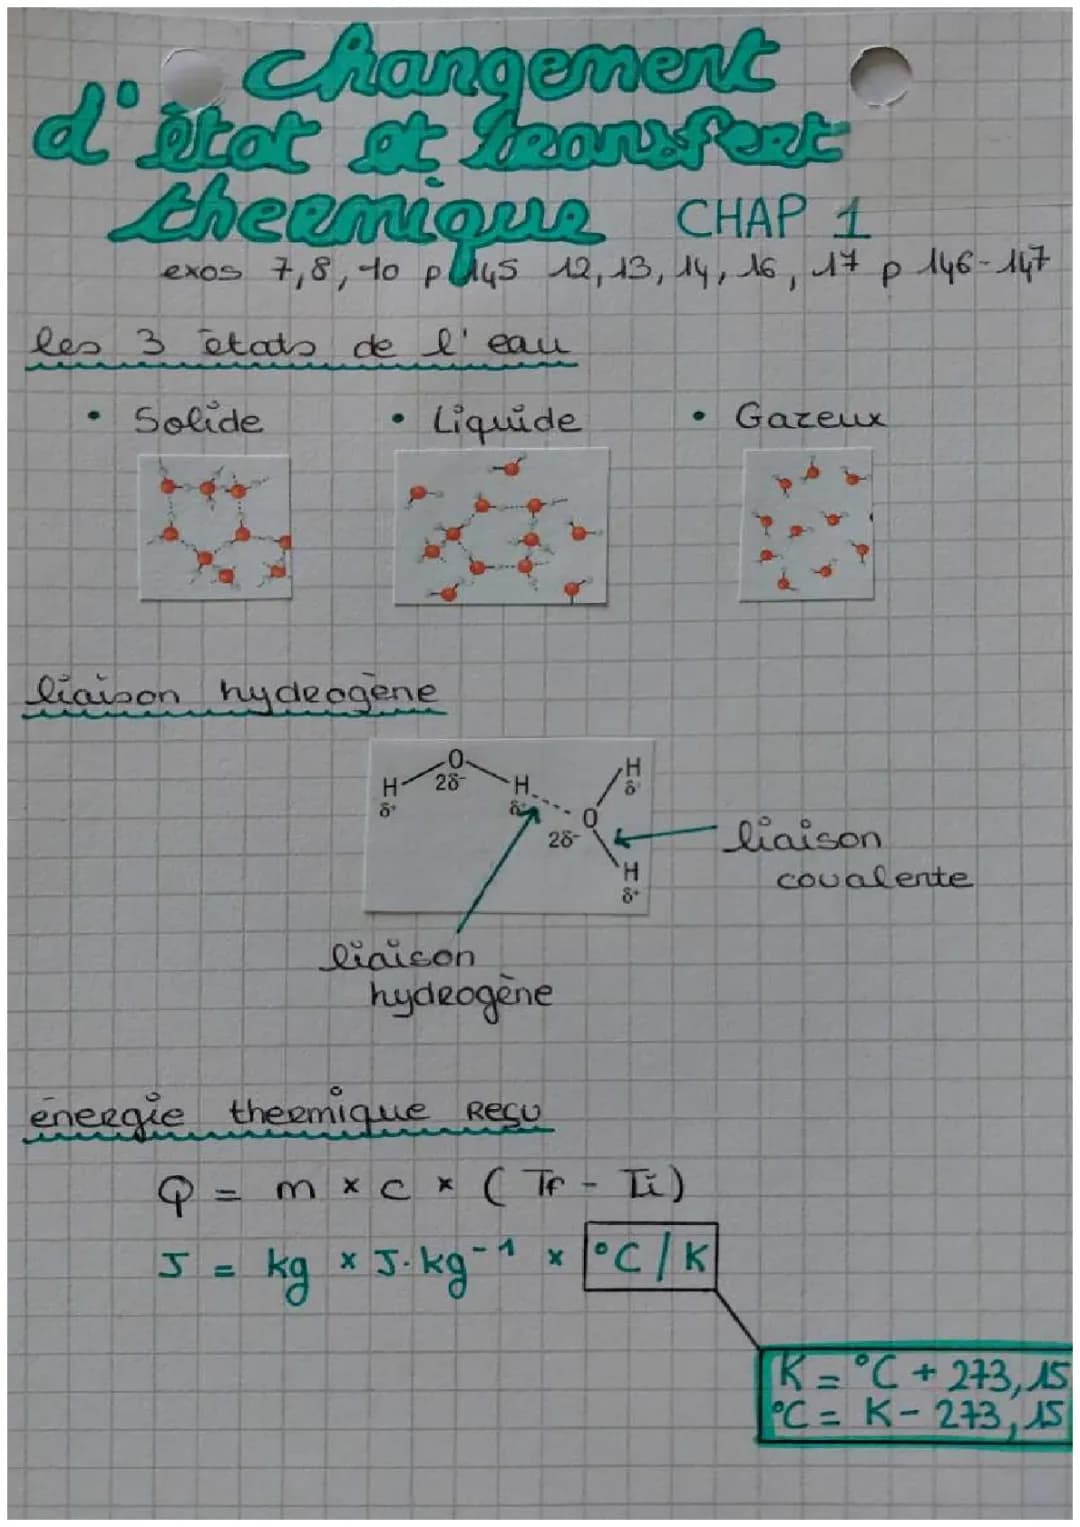 Changement
d'état et transfert
thermique CHAP 1
exos 7, 8, 10 p 145 12, 13, 14, 16, 17 p 146-147
les 3 états de l'eau
• Solide • Liquide • Gazeux
liaison hydrogène
H O H H
δ+ 2δ- δ+ δ+
O
2δ-
H
δ+
liaison
covalente
liaison
hydrogène
énergie thermique reçu
Q = m × c × (Tf - Ti)
J = kg × J.kg⁻¹ × °C/K
K = °C + 273,15
°C = K - 273,15